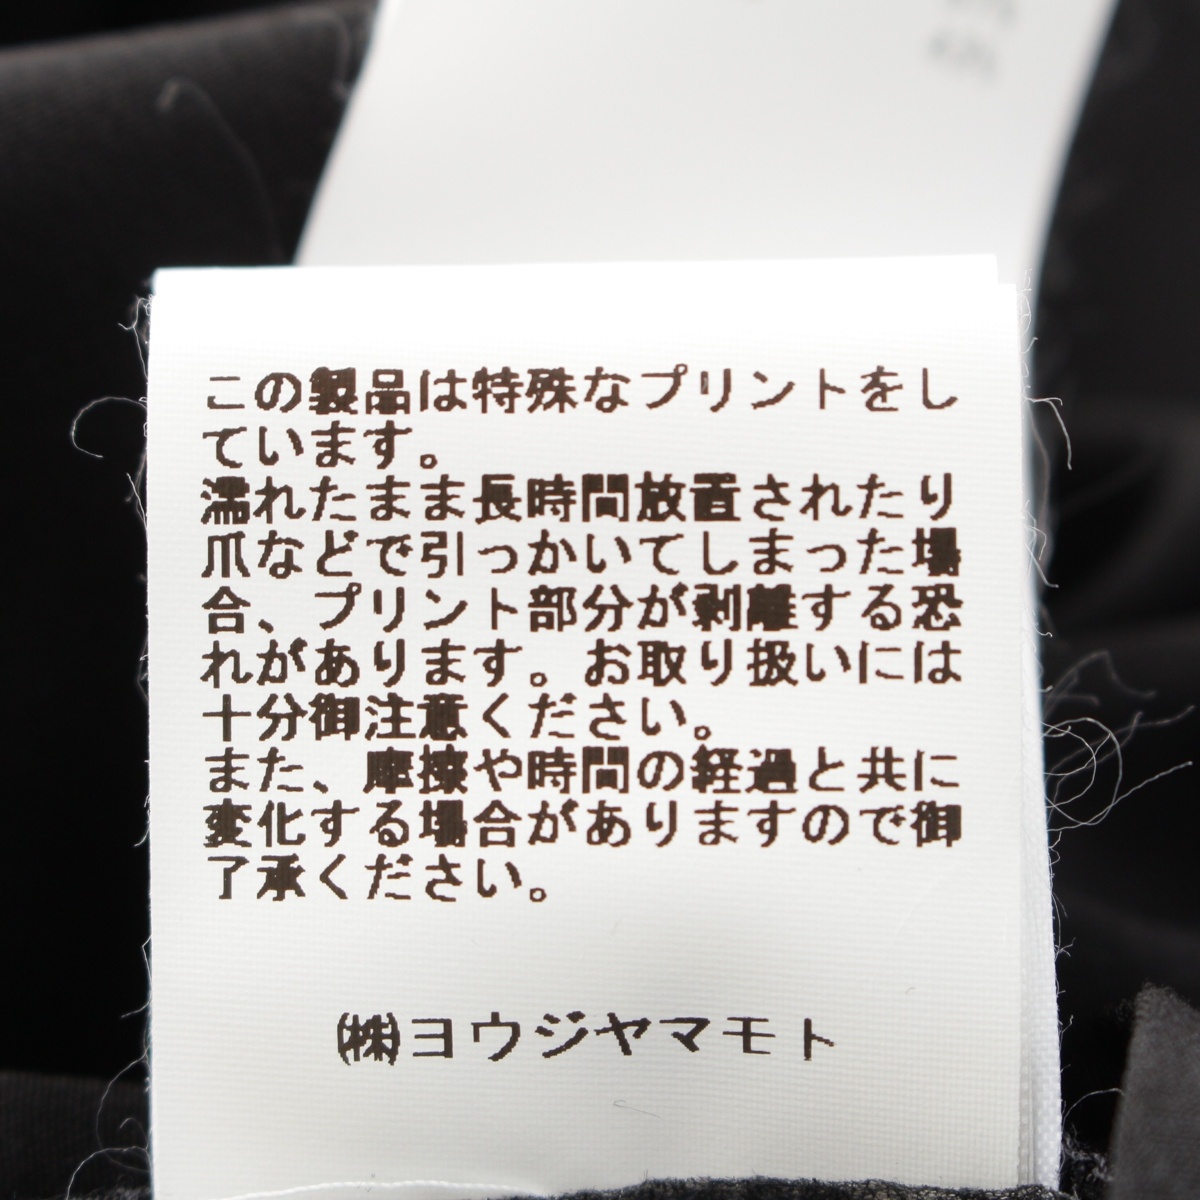 この製品は特殊なプリントをし
ています。
濡れたまま長時間放置されたり
爪などで引っかいてしまった場
合、プリント部分が剥離する恐
れがあります。お取り扱いには
十分御注意ください。
また、摩擦や時間の経過と共に
変化する場合がありますので御
了承ください。
㈱ヨウジヤマモト